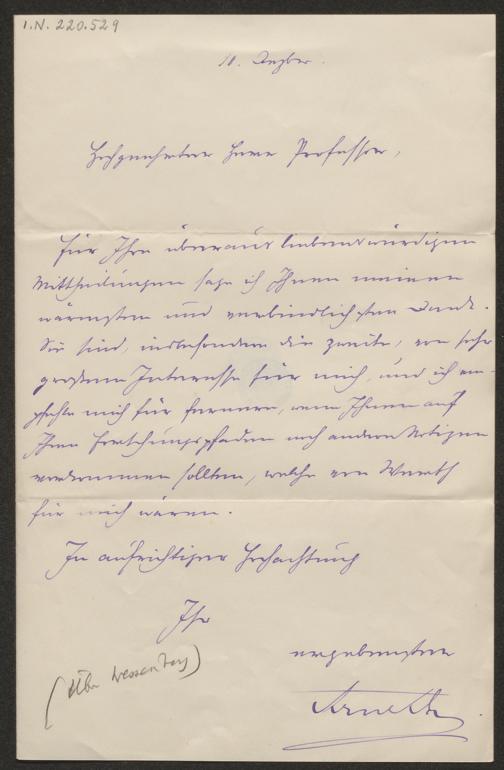 I.N. 220.529
10. Dezber.
Hochgeehrter Herr Professor,
für Ihre überaus liebenswürdigen
Mittheilungen sage ich Ihnen meinen
wärmsten und verbindlichsten Dank.
Sie sind, insbesondere die zweite, von sehr
großem Interesse für mich, und ich em-
pfehle mich für fernere, wenn Ihnen auf
Ihren Forschungspfaden noch andere Notizen
vorkommen sollten, welche von Werth
für mich wären.
In aufrichtiger Hochachtung
Ihr
ergebenster
Arneth
(Über Wessenberg)